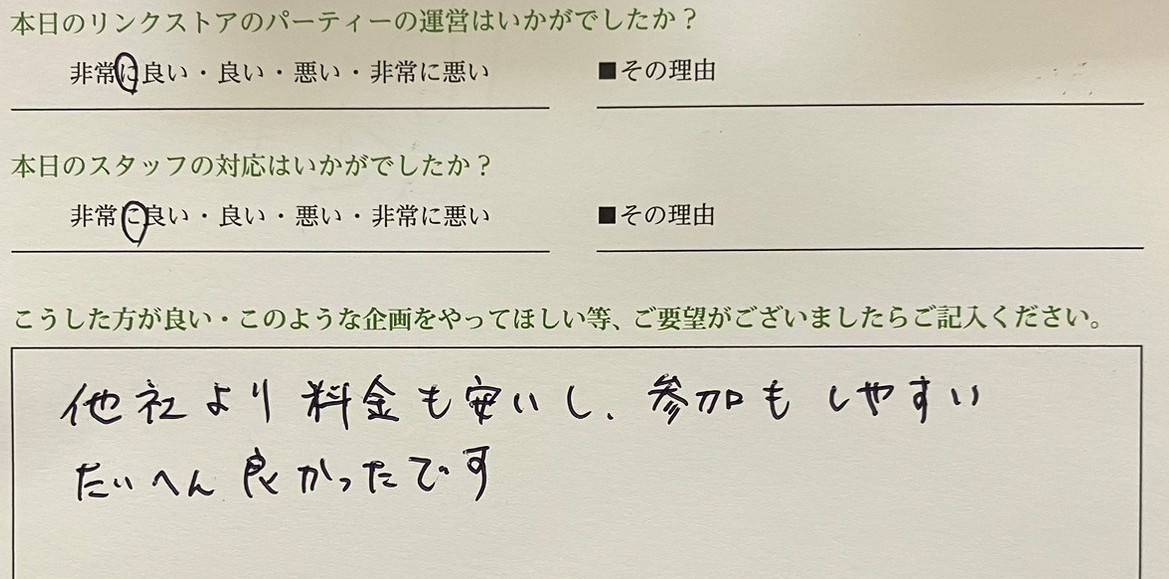 本日のリンクストアのパーティーの運営はいかがでしたか？
非常に良い・良い・悪い・非常に悪い
■その理由
本日のスタッフの対応はいかがでしたか？
非常に良い・良い・悪い・非常に悪い
■その理由
こうした方が良い・このような企画をやってほしい等、ご要望がございましたらご記入ください。
他社より料金も安いし、参加もしやすい
たいへん良かったです